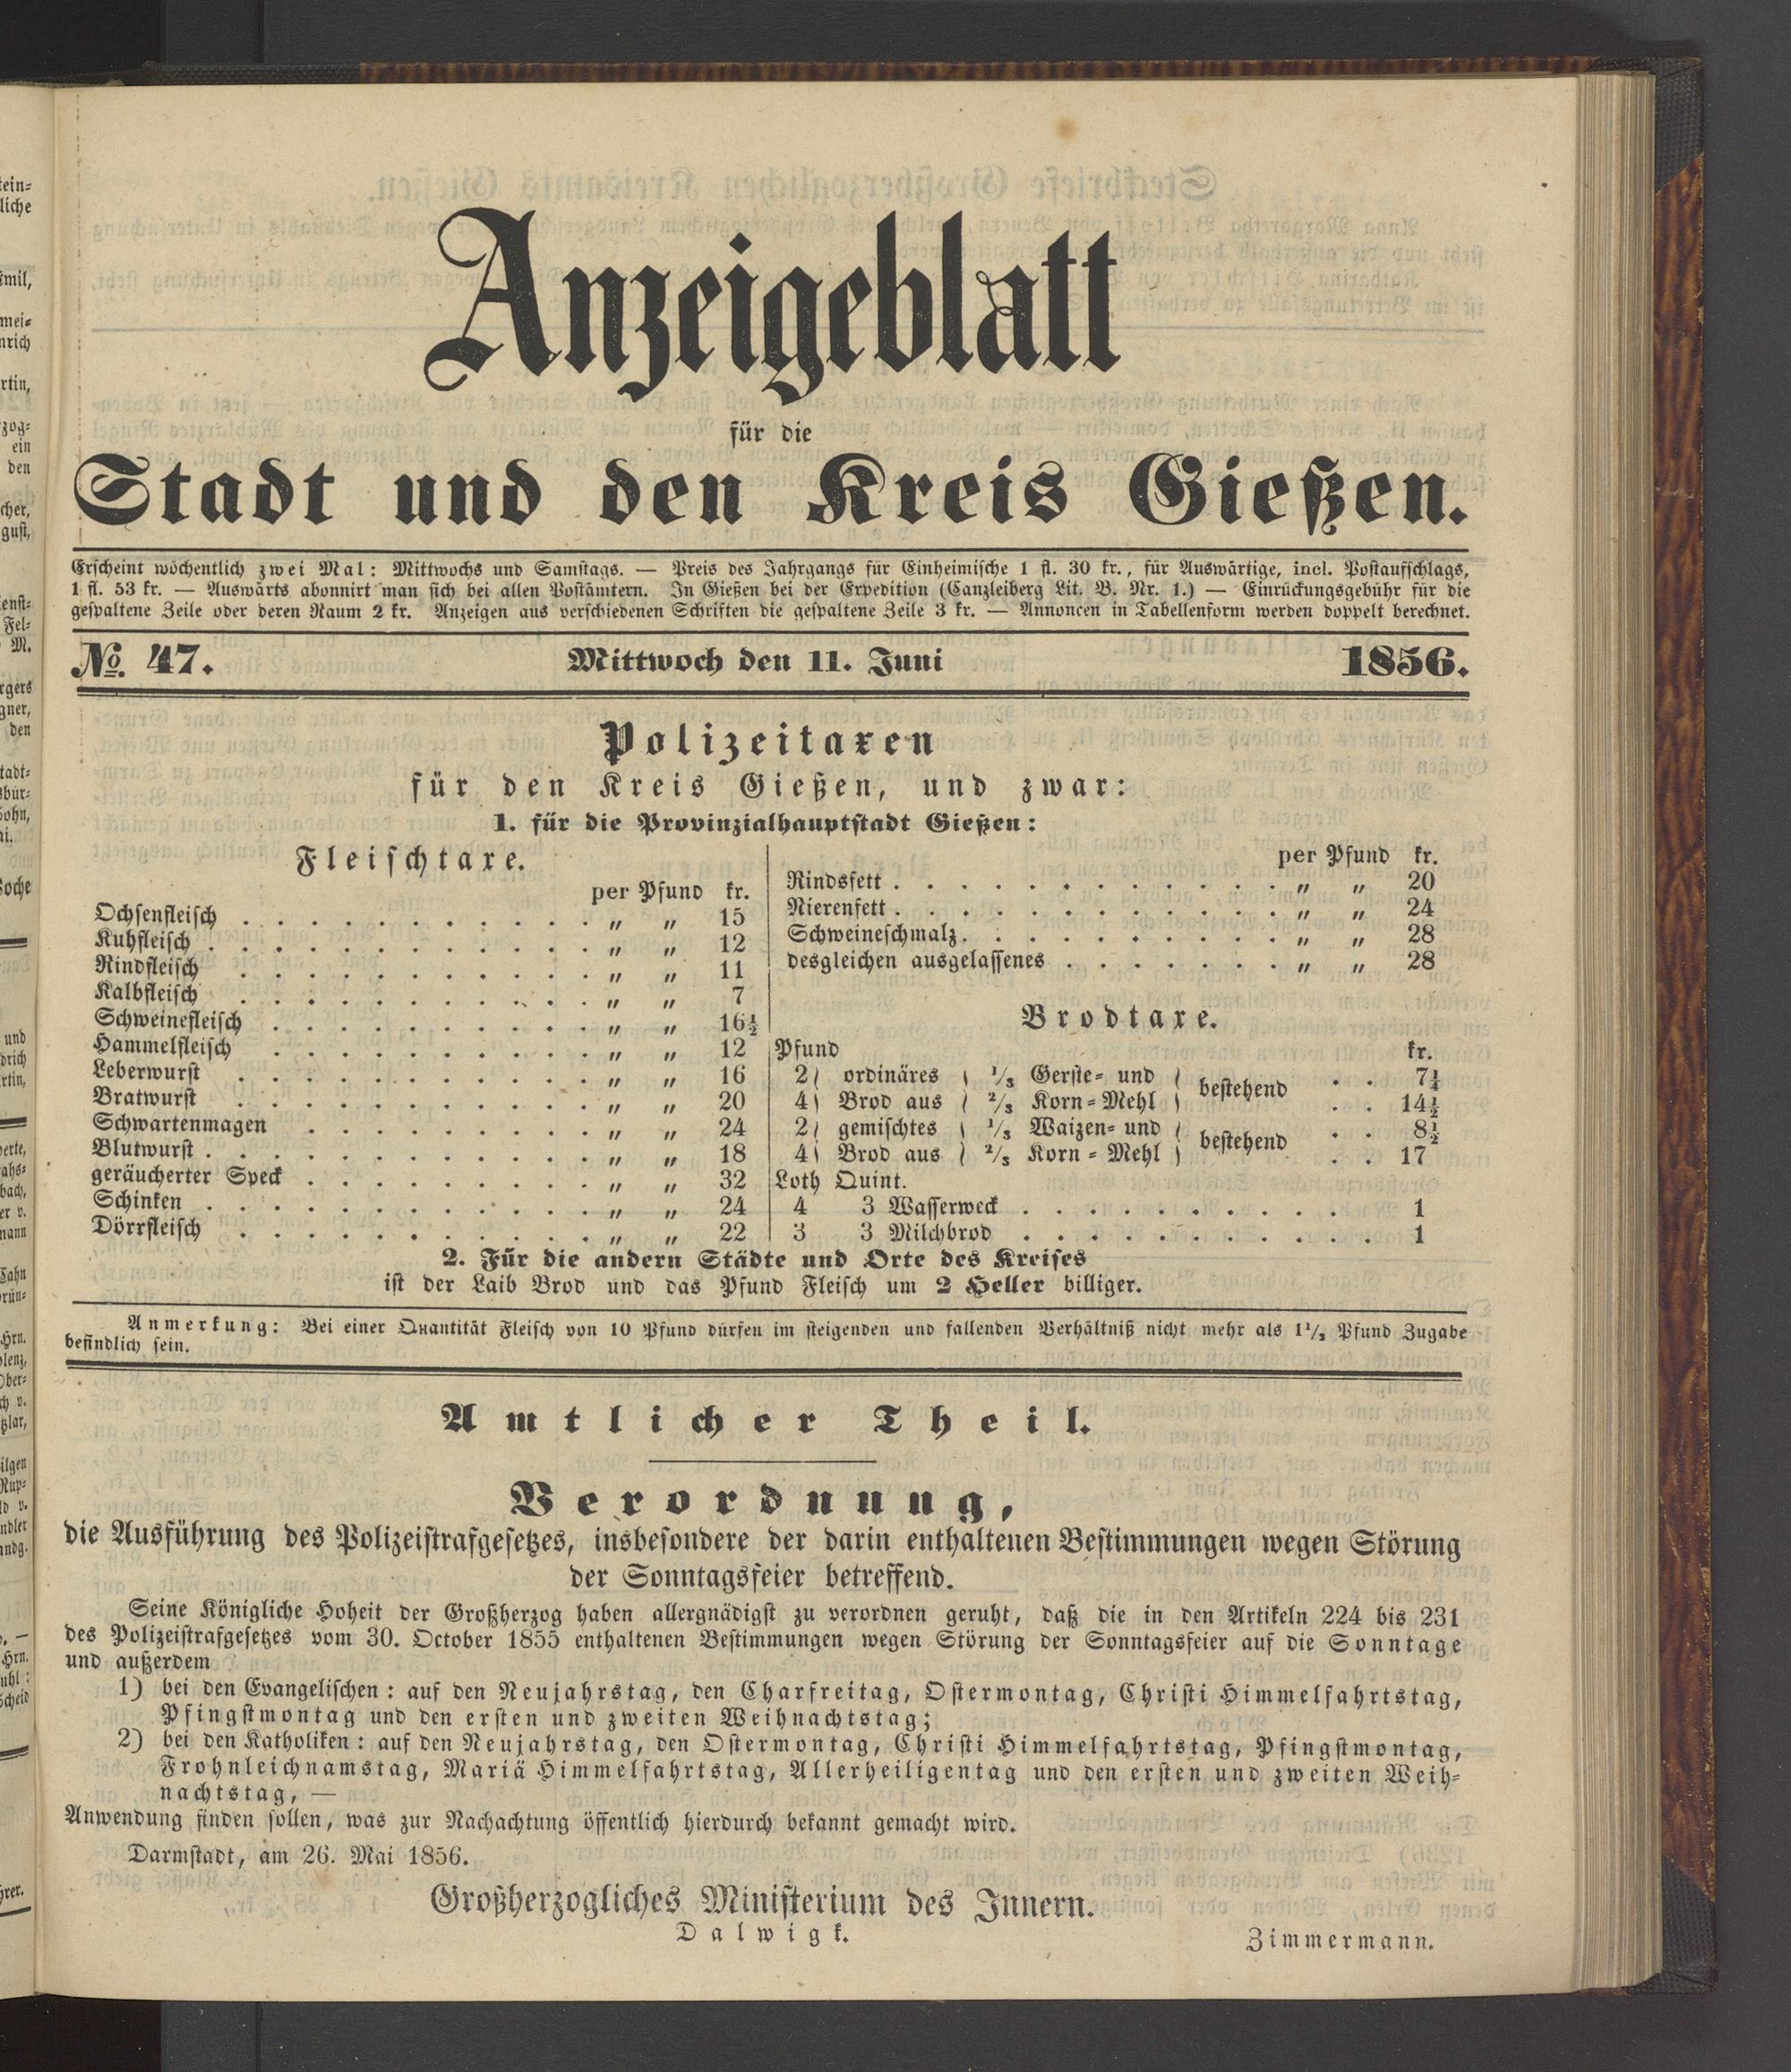 Anzeigeblatt
für die
Stadt und den Kreis Gießen.
Erscheint wöchentlich zwei Mal: Mittwochs und Samstags. — Preis des Jahrgangs für Einheimische 1 fl. 30 kr., für Auswärtige, incl. Postaufschlags,
1 fl. 53 kr. — Auswärts abonnirt man sich bei allen Postämtern. In Gießen bei der Expedition (Canzleiberg Lit. B. Nr. 1.) — Einrückungsgebühr für die
gespaltene Zeile oder deren Raum 2 kr. Anzeigen aus verschiedenen Schriften die gespaltene Zeile 3 kr. — Annoncen in Tabellenform werden doppelt berechnet.
No. 47. Mittwoch den 11. Juni 1856.
Polizeitaxen
für den Kreis Gießen, und zwar:
1. für die Provinzialhauptstadt Gießen:
Fleischtaxe.
per Pfund kr.
Ochsenfleisch . . . . . . . . . . . „ „ 15
Kuhfleisch . . . . . . . . . . . . „ „ 12
Rindfleisch . . . . . . . . . . . „ „ 11
Kalbfleisch . . . . . . . . . . . „ „ 7
Schweinefleisch . . . . . . . . . . „ „ 16½
Hammelfleisch . . . . . . . . . . „ „ 12
Leberwurst . . . . . . . . . . . „ „ 16
Bratwurst . . . . . . . . . . . „ „ 20
Schwartenmagen . . . . . . . . . „ „ 24
Blutwurst . . . . . . . . . . . . „ „ 18
geräucherter Speck . . . . . . . . . „ „ 32
Schinken . . . . . . . . . . . . „ „ 24
Dörrfleisch . . . . . . . . . . . „ „ 22
per Pfund kr.
Rindsfett . . . . . . . . . . . . . „ „ 20
Nierenfett . . . . . . . . . . . . . „ „ 24
Schweineschmalz . . . . . . . . . . . „ „ 28
desgleichen ausgelassenes . . . . . . . „ „ 28
Brodtaxe.
Pfund kr.
2 ordinäres 1/3 Gerste= und . . 7¼
4 Brod aus 2/3 Korn=Mehl bestehend . . 14½
2 gemischtes 1/3 Waizen= und . . 8½
4 Brod aus 2/3 Korn=Mehl bestehend . . 17
Loth Quint.
4 3 Wasserweck . . . . . . . . . . 1
3 3 Milchbrod . . . . . . . . . . . 1
2. Für die andern Städte und Orte des Kreises
ist der Laib Brod und das Pfund Fleisch um 2 Heller billiger.
Anmerkung: Bei einer Quantität Fleisch von 10 Pfund dürfen im steigenden und fallenden Verhältniß nicht mehr als 1½ Pfund Zugabe
befindlich sein.
Amtlicher Theil.
Verordnung,
die Ausführung des Polizeistrafgesetzes, insbesondere der darin enthaltenen Bestimmungen wegen Störung
der Sonntagsfeier betreffend.
Seine Königliche Hoheit der Großherzog haben allergnädigst zu verordnen geruht, daß die in den Artikeln 224 bis 231
des Polizeistrafgesetzes vom 30. October 1855 enthaltenen Bestimmungen wegen Störung der Sonntagsfeier auf die Sonntage
und außerdem
1) bei den Evangelischen: auf den Neujahrstag, den Charfreitag, Ostermontag, Christi Himmelfahrtstag,
Pfingstmontag und den ersten und zweiten Weihnachtstag;
2) bei den Katholiken: auf den Neujahrstag, den Ostermontag, Christi Himmelfahrtstag, Pfingstmontag,
Frohnleichnamstag, Mariä Himmelfahrtstag, Allerheiligentag und den ersten und zweiten Weih=
nachtstag, —
Anwendung finden sollen, was zur Nachachtung öffentlich hierdurch bekannt gemacht wird.
Darmstadt, am 26. Mai 1856.
Großherzogliches Ministerium des Innern.
Dalwigk.
Zimmermann.